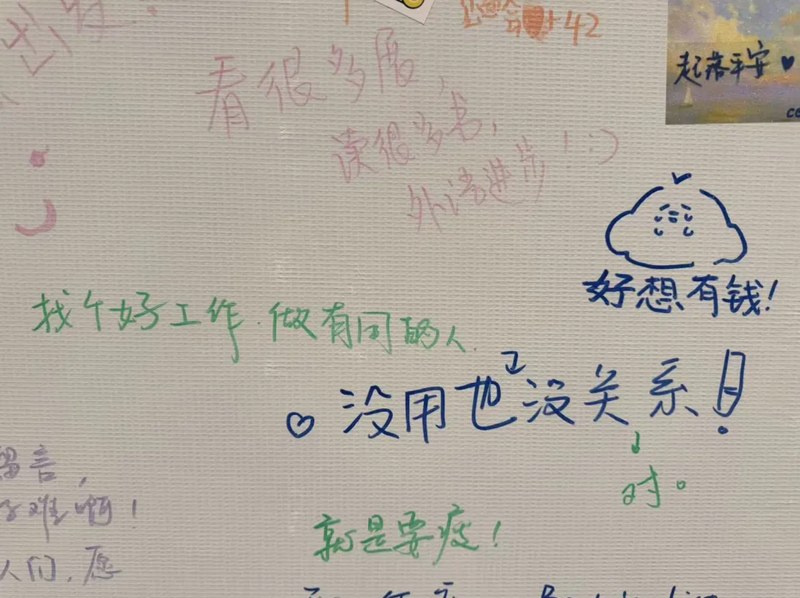 +42
起落平安
看很多展，
读很多书，
外语进步！:)
好想有钱！
找个好工作.做有同的人.
没用也没关系！
对。
留言，
难啊！
人们，愿
就是要疲！